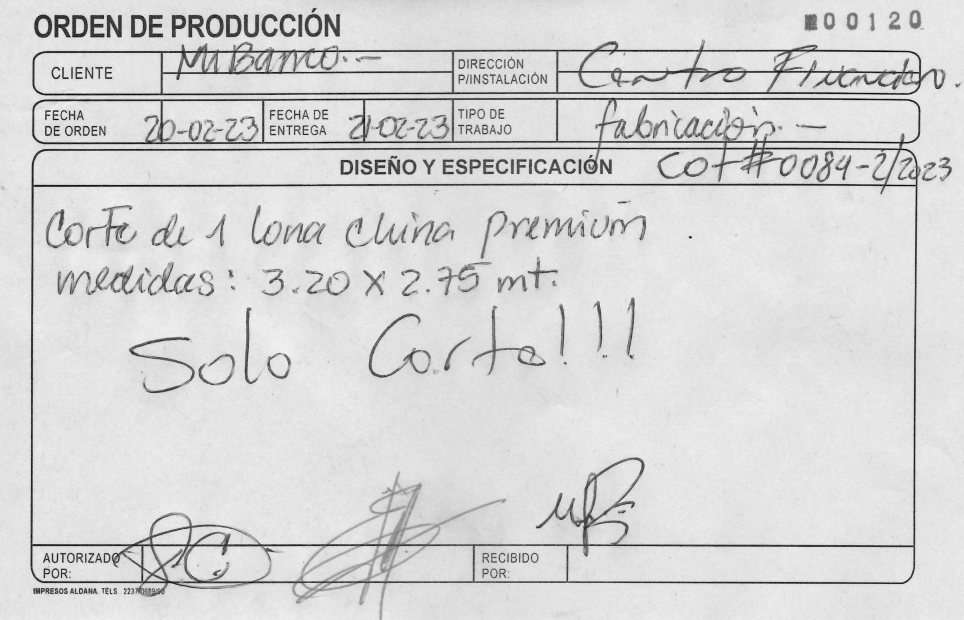 ORDEN DE PRODUCCIÓN
00120
CLIENTE Mi Banco.-
DIRECCIÓN P/INSTALACIÓN Centro Financiero.
FECHA DE ORDEN 20-02-23
FECHA DE ENTREGA 21-02-23
TIPO DE TRABAJO fabricación.-
DISEÑO Y ESPECIFICACIÓN Cot#0084-2/2023
Corte de 1 lona china premium.
medidas: 3.20 x 2.75 mt.
Solo Corte!!!
AUTORIZADO POR:
RECIBIDO POR:
IMPRESOS ALDANA, TELS